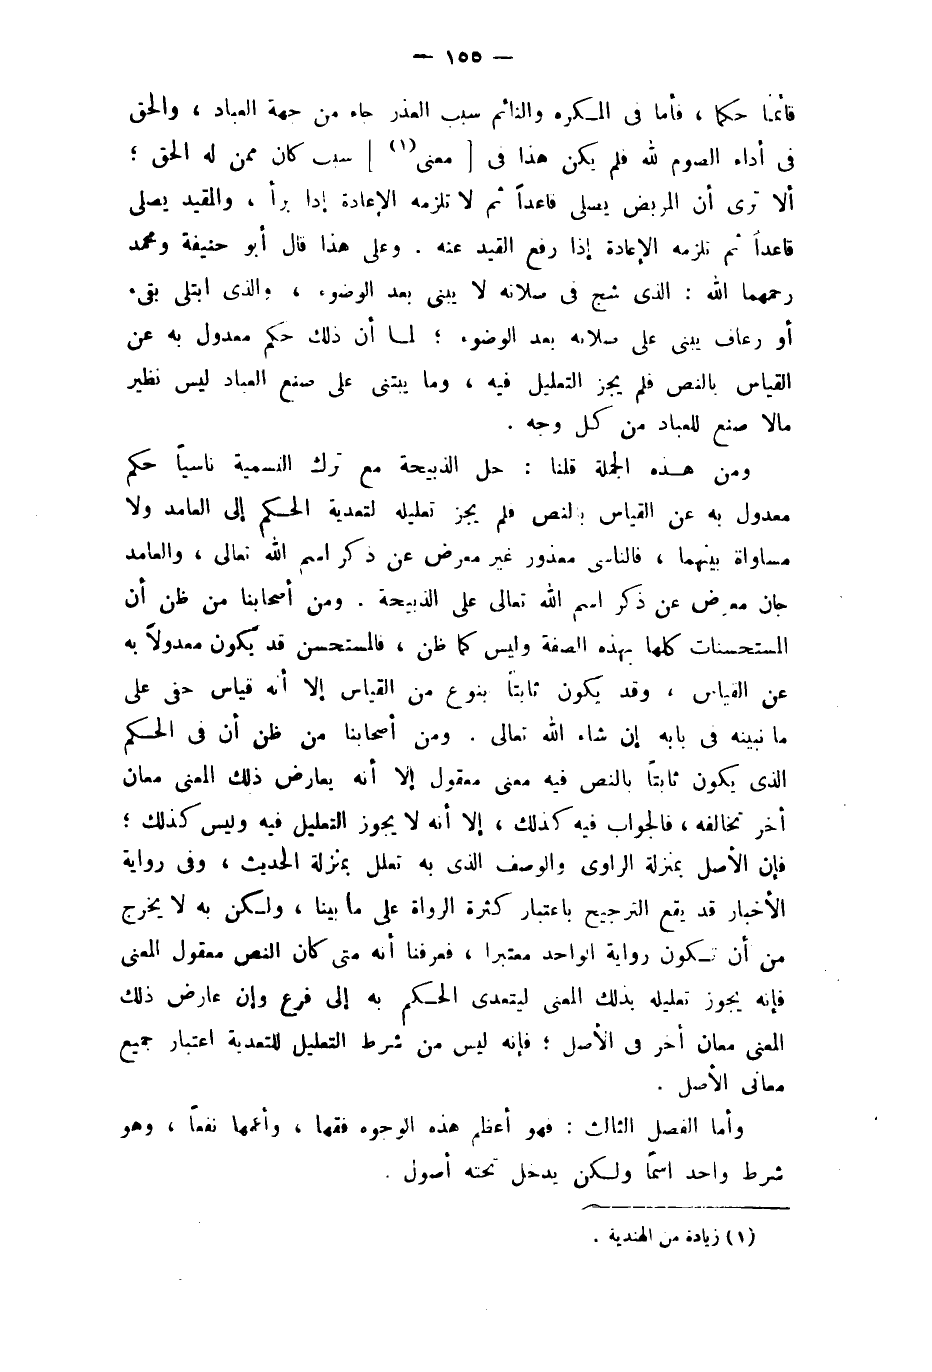 — ١٥٥ —
قائما حكما ، فأما فى المكره والنائم سبب العذر جاء من جهة العباد ، والحق
فى أداء الصوم لله فلم يكن هذا فى [ معنى (١) ] سبب كان ممن له الحق ؛
ألا ترى أن المريض يصلى قاعداً ثم لا تلزمه الإعادة إذا برأ ، والمقيد يصلى
قاعداً ثم تلزمه الإعادة إذا رفع القيد عنه . وعلى هذا قال أبو حنيفة ومحمد
رحمهما الله : الذى شج فى صلاته لا يبنى بعد الوضوء ، والذى ابتلى بقىء
أو رعاف يبنى على صلاته بعد الوضوء ؛ لما أن ذلك حكم معدول به عن
القياس بالنص فلم يجز التعليل فيه ، وما يبتنى على صنع العباد ليس نظير
مالا صنع للعباد من كل وجه .
ومن هذه الجملة قلنا : حل الذبيحة مع ترك التسمية ناسياً حكم
معدول به عن القياس بالنص فلم يجز تعليله لتعدية الحكم إلى العامد ولا
مساواة بينهما ، فالناسى معذور غير معرض عن ذكر اسم الله تعالى ، والعامد
جان معرض عن ذكر اسم الله تعالى على الذبيحة . ومن أصحابنا من ظن أن
المستحسنات كلها بهذه الصفة وليس كما ظن ، فالمستحسن قد يكون معدولاً به
عن القياس ، وقد يكون ثابتاً بنوع من القياس إلا أنه قياس خفى على
ما نبينه فى بابه إن شاء الله تعالى . ومن أصحابنا من ظن أن فى الحكم
الذى يكون ثابتاً بالنص فيه معنى معقول إلا أنه يعارض ذلك المعنى معان
أخر تخالفه ، فالجواب فيه كذلك ، إلا أنه لا يجوز التعليل فيه وليس كذلك ؛
فإن الأصل بمنزلة الراوى والوصف الذى به تعلل بمنزلة الحديث ، وفى رواية
الأخبار قد يقع الترجيح باعتبار كثرة الرواة على ما بينا ، ولكن به لا يخرج
من أن تكون رواية الواحد معتبرا ، فعرفنا أنه متى كان النص معقول المعنى
فإنه يجوز تعليله بذلك المعنى ليتعدى الحكم به إلى فرع وإن عارض ذلك
المعنى معان أخر فى الأصل ؛ فإنه ليس من شرط التعليل للتعدية اعتبار جميع
معانى الأصل .
وأما الفصل الثالث : فهو أعظم هذه الوجوه فقها ، وأعمها نفعاً ، وهو
شرط واحد اسمًا ولكن يدخل تحته أصول .
(١) زيادة من الهندية .